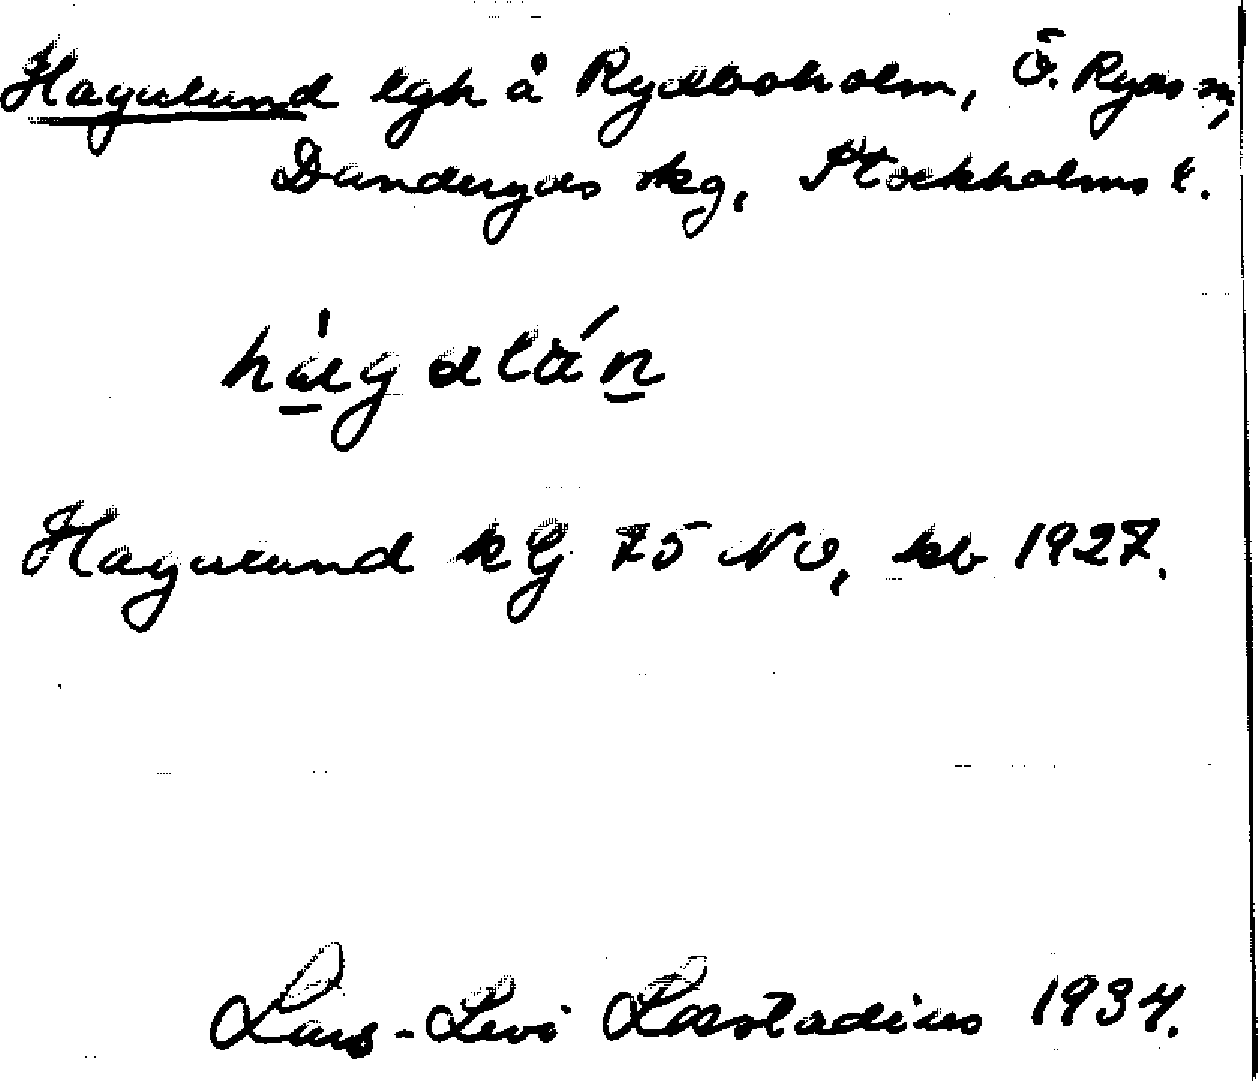 Hagalund lgh å Rydboholm, Ö. Ryds sn,
Danderyds skg, Stockholms l.
hàgalán
Hagalund kG 75 NO, kb 1927.
Lars-Levi Læstadius 1934.